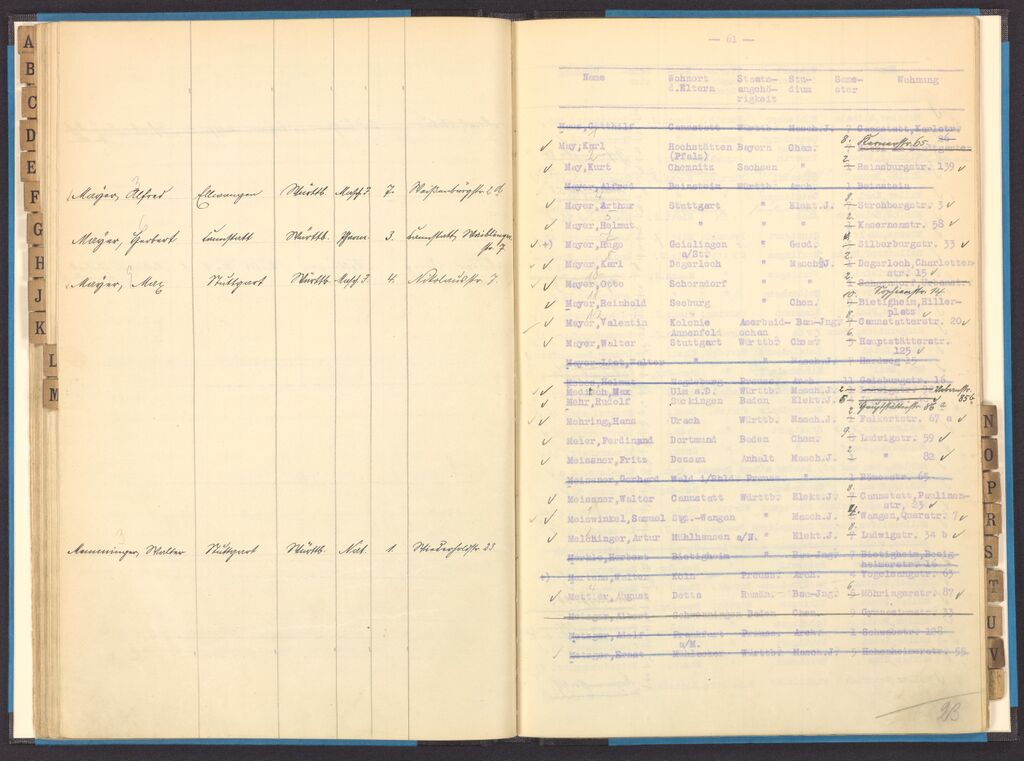 A
B
C
D
E
F
G
H
J
K
L
M
Mayer, Alfred Ellwangen Württb. Masch.I. 7.
Mayer, Herbert Cannstatt Württb. Pharm. 3. Cannstatt, Waiblinger
str. 7
Mayer, Max Stuttgart Württb. Masch.I. 4. Nikolausstr. 7.
Memminger, Walter Stuttgart Württb. Nat. 1. Wiederholdstr. 23.
— 61 —
Name Wohnort Staats- Stu- Seme- Wohnung
d.Eltern angehö- dium ster
rigkeit
Cannstatt Württb. Masch.J. Cannstatt, Karlstr.
May, Karl Hochstätten Bayern Chem. 8. Kernerstr. 65
(Pfalz)
May, Kurt Chemnitz Sachsen " 2. Reinsburgstr. 139
Mayer, Alfred Beinstein Württb. Arch. 1 Beinstein
Mayer, Arthur Stuttgart " Elekt.J. 8. Strohbergstr. 3
Mayer, Helmut " " " 2. Kasernenstr. 58
+) Mayer, Hugo Geislingen " Geod. Silberburgstr. 33
a/St.
Mayer, Karl Degerloch " Masch.J. 2. Degerloch, Charlotten-
str. 15
Mayer, Otto Schorndorf " " 2.
Sophienstr. 14
Mayer, Reinhold Seeburg " Chem. 10. Bietigheim, Hiller-
platz
Mayer, Valentin Kolonie Aserbaid- Bau-Jng. 8. Cannstatterstr. 20
Annenfeld schen
Mayer, Walter Stuttgart Württb. Chem. 6. Hauptstätterstr.
125
Mayer-List, Walter " " Masch.J. 7 Herdweg 15
Mebes, Helmut Magdeburg Preuss. Arch. 11 Gaisburgstr. 16
Max Ulm a.D. Württb. Masch.J. 2
Mehr, Rudolf Säckingen Baden Elekt.J. 5
Mehring, Hans Urach Württb. Masch.J. 2 Falkertstr. 67 a
Meier, Ferdinand Dortmund Baden Chem. 9. Ludwigstr. 59
Meissner, Fritz Dessau Anhalt Masch.J. 2. " 82
Meissner, Gerhard Wald i/Rhld. Preuss. " 1 Römerstr. 65
Meissner, Walter Cannstatt Württb. Elekt.J. 8. Cannstatt, Paulinen-
str. 23
Meiswinkel, Samuel Stg.-Wangen " Masch.J. 4. Wangen, 7
Melchinger, Artur Mühlhausen a/N. " Elekt.J. 8. Ludwigstr. 34 b
Merkle, Herbert Bietigheim " Bau-Jng. 7 Bietigheim, Besig-
heimerstr. 16
+) Mertens, Walter Köln Preuss. Arch. Vogelsangstr. 63
Mettler, August Detta Rumän. Bau-Jng. 6. Möhringerstr. 87
Metzger, Albert Schwenningen Baden Chem. 9 Gymnasiumstr. 33
Metzger, Adolf Frankfurt Preuss. Arch. 1 Schwabstr. 128
a/M.
Metzger, Ernst Mühlacker Württb. Masch.J. 5 Hohenheimerstr. 55
N
O
P
R
S
T
U
V